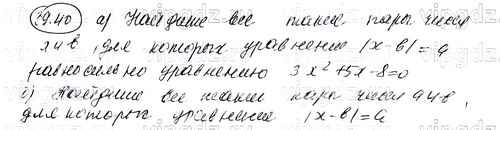 39.40 а) Найдите все такие пары чисел
а и в, для которых уравнение |x-в|=a
равносильно уравнению 3x²+5x-8=0
б) Найдите все такие пары чисел a и в,
для которых уравнение |x-в|=a